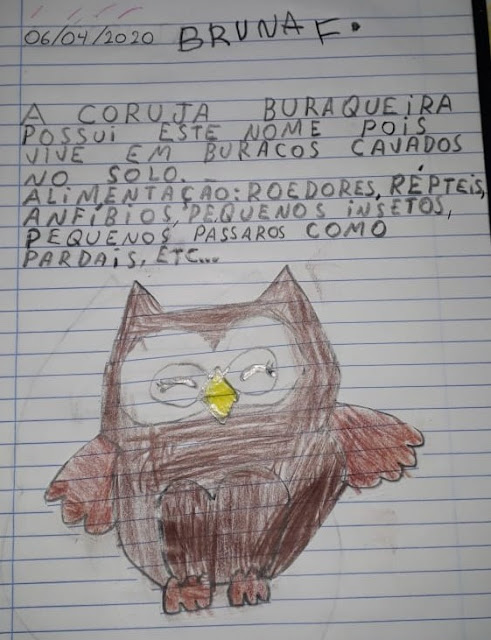 06/04/2020 BRUNA F.
A CORUJA BURAQUEIRA
POSSUI ESTE NOME POIS
VIVE EM BURACOS CAVADOS
NO SOLO.
ALIMENTAÇÃO: ROEDORES, RÉPTEIS,
ANFÍBIOS, PEQUENOS INSETOS,
PEQUENOS PASSAROS COMO
PARDAIS, ETC...